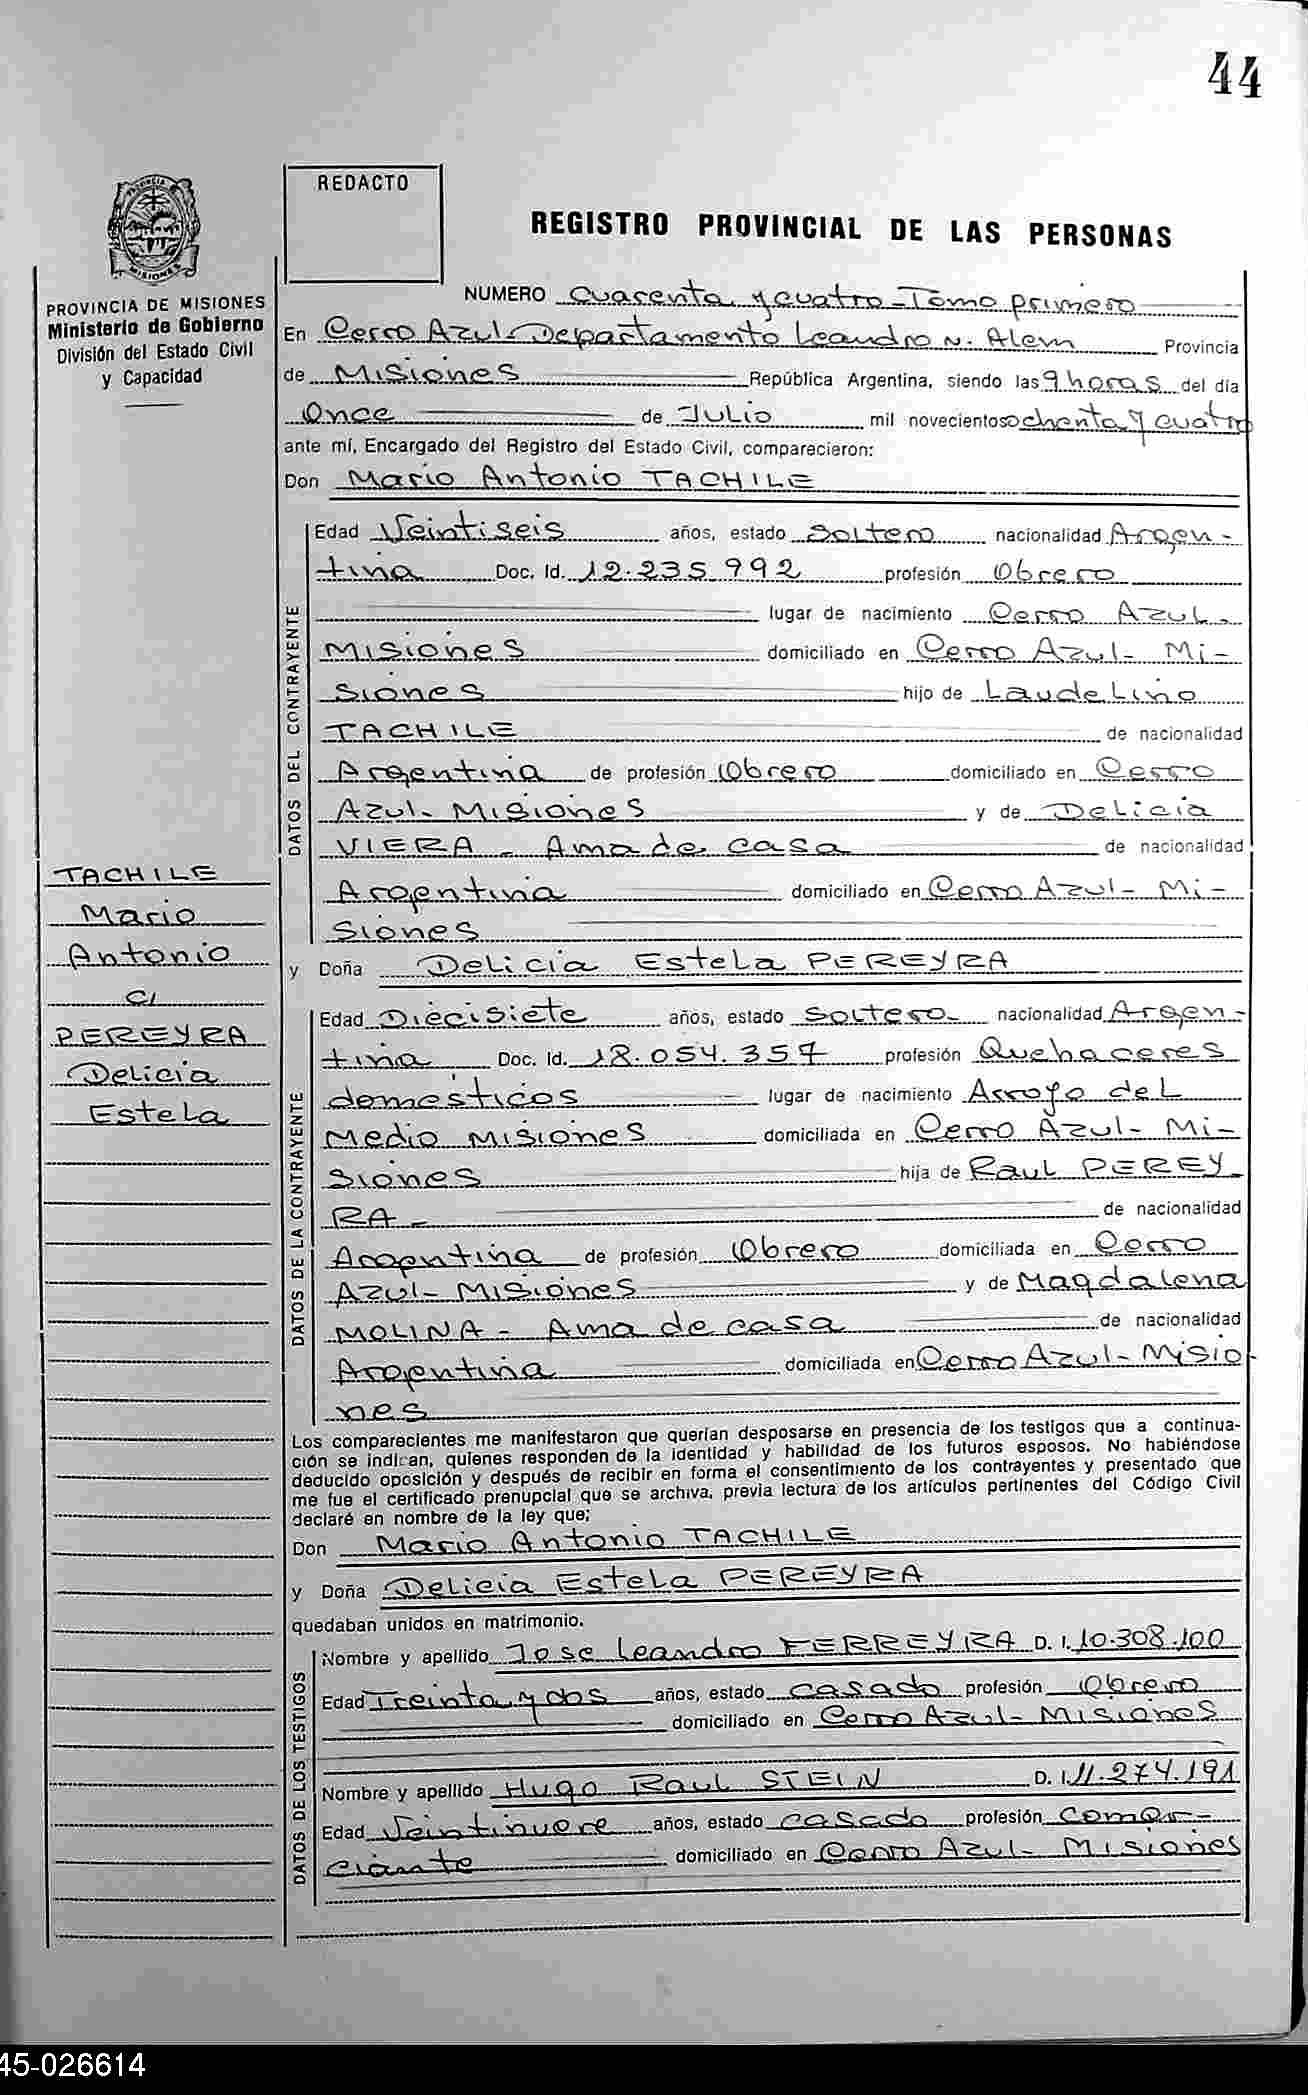 44
REDACTO
REGISTRO PROVINCIAL DE LAS PERSONAS
PROVINCIA DE MISIONES
Ministerio de Gobierno
División del Estado Civil
y Capacidad
NUMERO Cuarenta y cuatro - Tomo primero
En Cerro Azul - Departamento Leandro N. Alem Provincia
de Misiones República Argentina, siendo las 9 horas del día
Once de Julio mil novecientos ochenta y cuatro
ante mí, Encargado del Registro del Estado Civil, comparecieron:
Don Mario Antonio TACHILE
DATOS DEL CONTRAYENTE
Edad Veintiseis años, estado Soltero nacionalidad Argen-
tina Doc. Id. 12.235.992 profesión Obrero
lugar de nacimiento Cerro Azul.
Misiones domiciliado en Cerro Azul - Mi-
siones hijo de Laudelino
TACHILE de nacionalidad
Argentina de profesión Obrero domiciliado en Cerro
Azul - Misiones y de Delicia
VIERA - Ama de casa de nacionalidad
Argentina domiciliado en Cerro Azul - Mi-
siones
TACHILE
Mario
Antonio
c/
PEREYRA
Delicia
Estela
y Doña Delicia Estela PEREYRA
DATOS DE LA CONTRAYENTE
Edad Diecisiete años, estado Soltero - nacionalidad Argen-
tina Doc. Id. 18.054.357 profesión Quehaceres
domésticos lugar de nacimiento Arroyo del
Medio Misiones domiciliada en Cerro Azul - Mi-
siones hija de Raul PEREY-
RA - de nacionalidad
Argentina de profesión Obrero domiciliada en Cerro
Azul - Misiones y de Magdalena
MOLINA - Ama de casa de nacionalidad
Argentina domiciliada en Cerro Azul - Misio-
nes
Los comparecientes me manifestaron que querían desposarse en presencia de los testigos que a continua-
ción se indican, quienes responden de la identidad y habilidad de los futuros esposos. No habiéndose
deducido oposición y después de recibir en forma el consentimiento de los contrayentes y presentado que
me fue el certificado prenupcial que se archiva, previa lectura de los artículos pertinentes del Código Civil
declaré en nombre de la ley que;
Don Mario Antonio TACHILE
y Doña Delicia Estela PEREYRA
quedaban unidos en matrimonio.
DATOS DE LOS TESTIGOS
Nombre y apellido Jose Leandro FERREYRA D. I. 10.308.100
Edad Treinta y dos años, estado casado profesión Obrero
domiciliado en Cerro Azul - Misiones
Nombre y apellido Hugo Raul STEIN D. I. 11.274.191
Edad Veintinueve años, estado casado profesión Comer-
ciante domiciliado en Cerro Azul - Misiones
45-026614